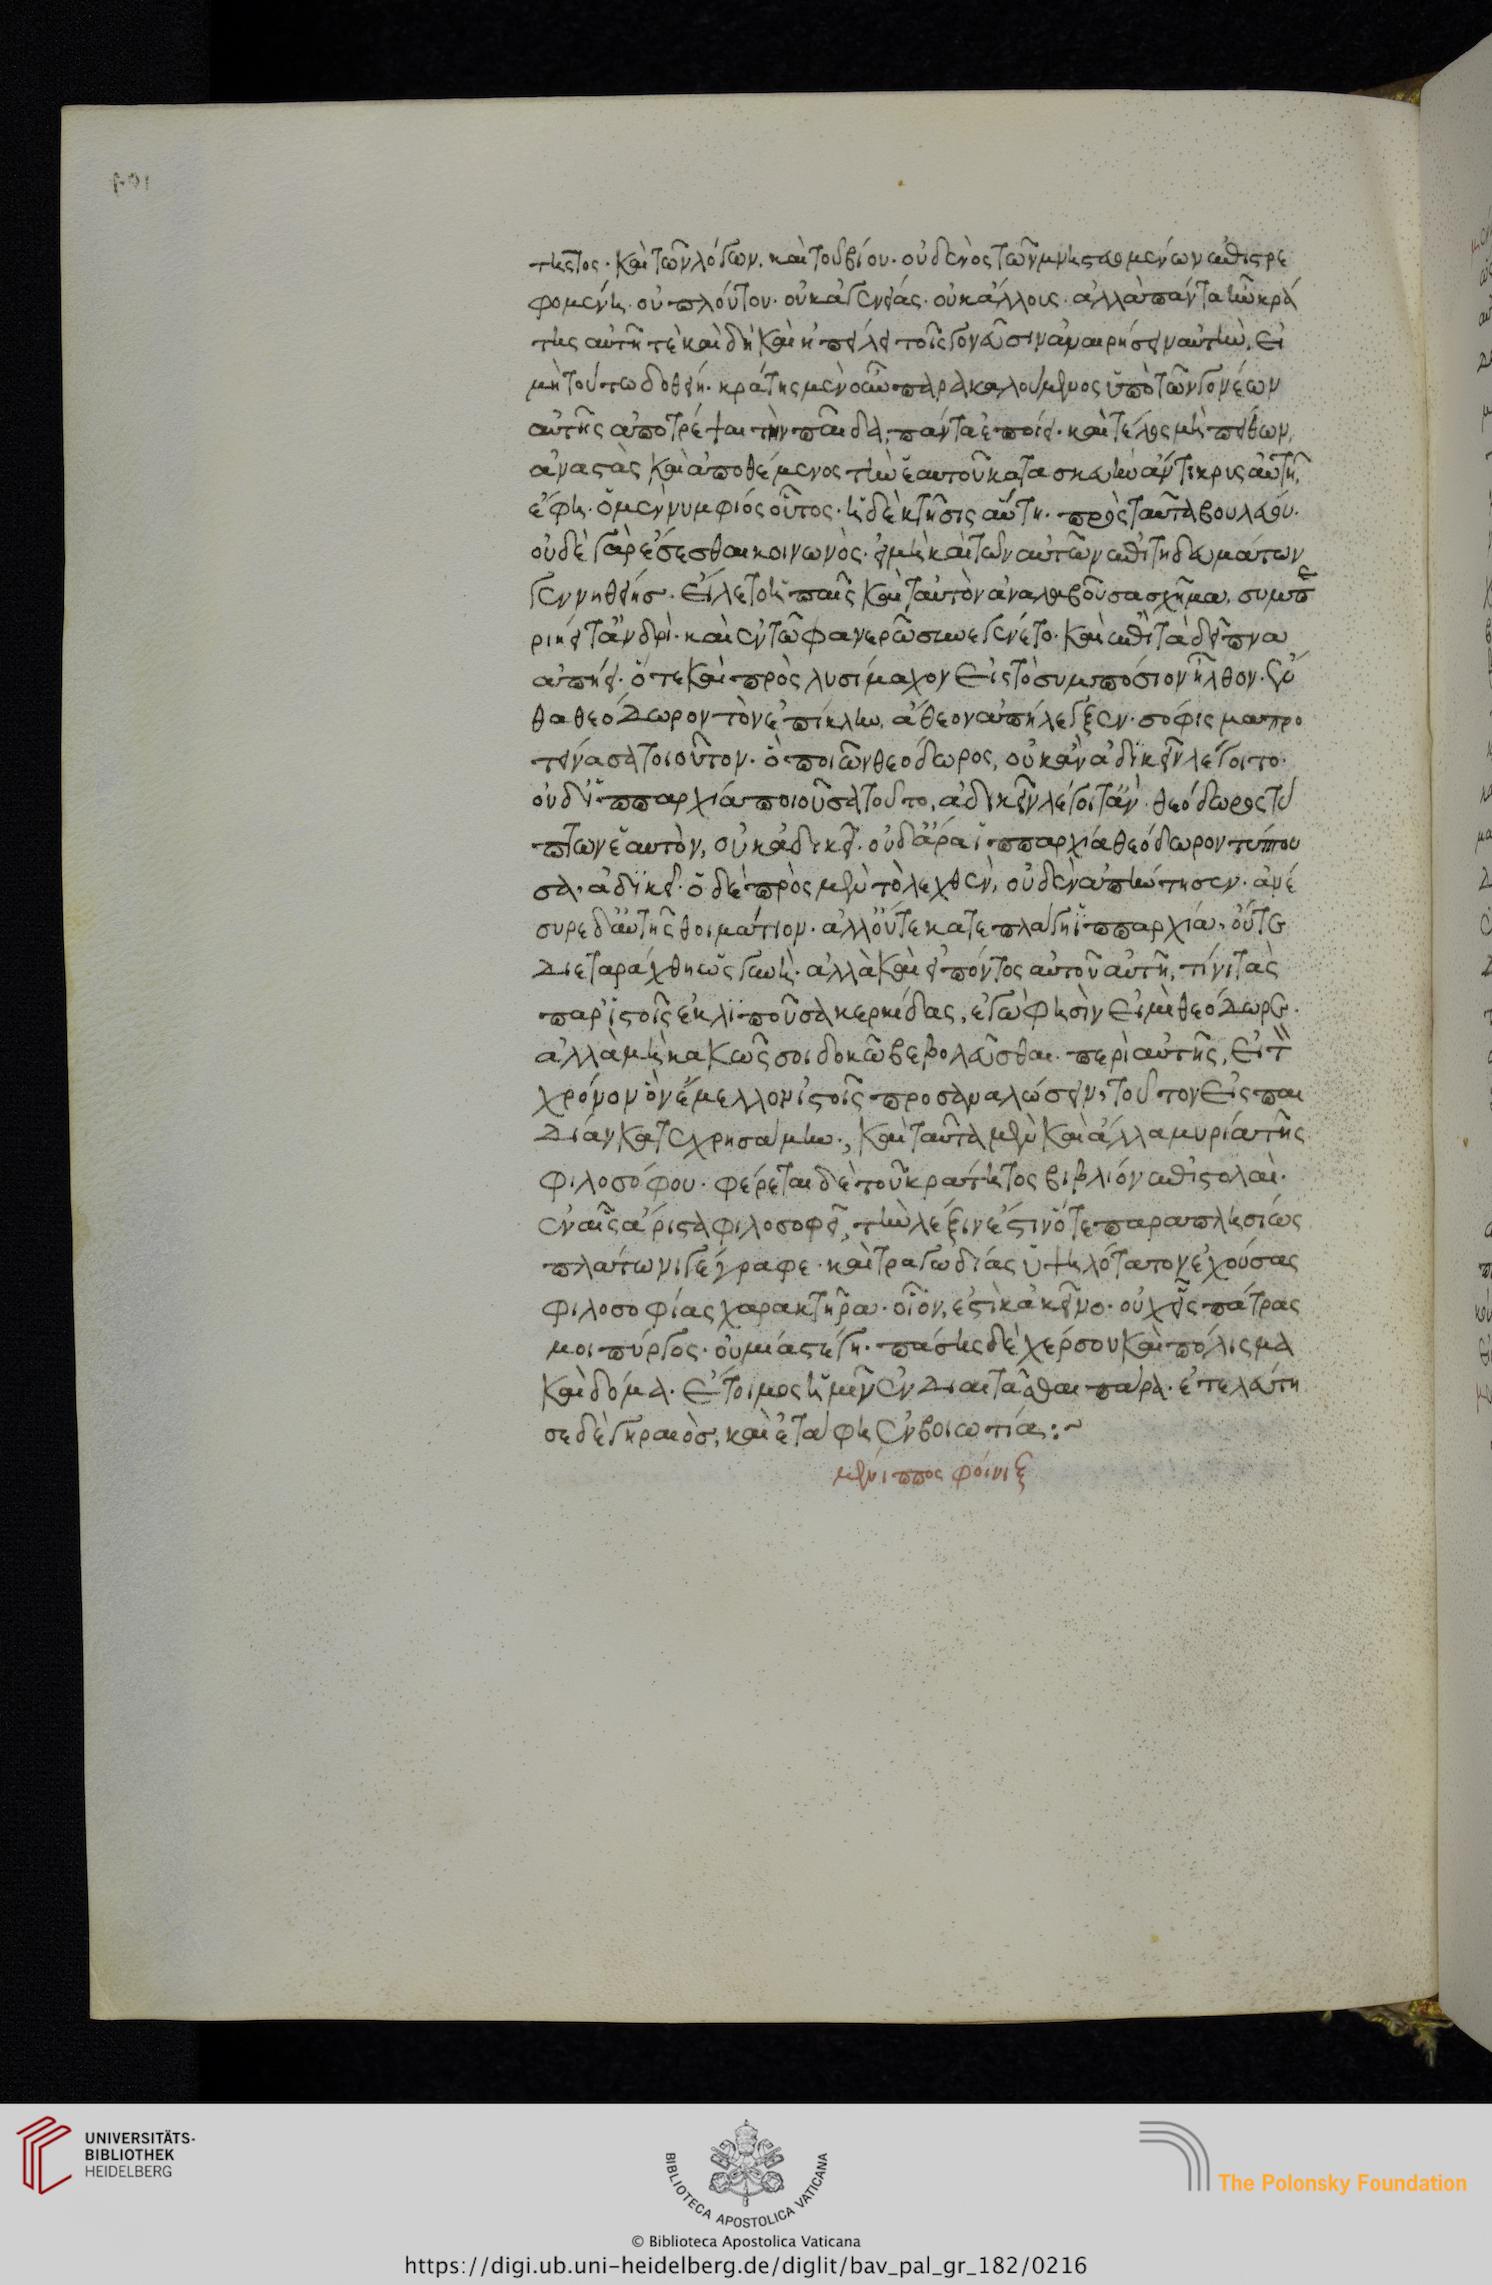 τητος· καὶ τῶν λόγων. καὶ τοῦ βίου· οὐδενὸς τῶν μνηστευομένων ἐπιστρε
φομένη· οὐ πλούτου· οὐκ εὐγενείας· οὐ κάλλους· ἀλλὰ πάντα ἦν κρά
της αὐτῆ τὲ καὶ δὴ καὶ ἠπείλει τοῖς γονεῦσιν ἀναιρήσειν αὑτὴν, εἰ
μὴ τούτω δοθείη· κράτης μὲν οὖν παρακαλούμενος ὑπὸ τῶν γονέων
αὐτῆς ἀποτρέψαι τὴν παῖδα, πάντα ἐποίει· καὶ τέλος μὴ πείθων,
ἀναστὰς καὶ ἀποθέμενος τὴν ἑαυτοῦ κατασκευὴν ἀντικρις αὐτῆ,
ἔφη· ὁ μὲν νυμφίος οὗτος· ἡ δὲ κτῆσις αὕτη· πρὸς ταῦτα βουλεύου·
οὐδὲ γὰρ ἔσεσθαι κοινωνὸς· εἰ μὴ καὶ τῶν αὐτῶν ἐπιτηδευμάτων
γεννηθείης· εἵλετο ἡ παῖς καὶ ταυτὸν ἀναλαβοῦσα σχῆμα, συμπε
ριήει τἀνδρὶ· καὶ ἐν τῶ φανερῶ συνεγένετο· καὶ ἐπὶ τὰ δεῖπνα
ἀπήει· ὅτε καὶ πρὸς λυσίμαχον εἰς τὸ συμπόσιον ἦλθον· ἔν
θα θεόδωρον τὸν ἐπίκλην ἄθεον ἀπήλεγξεν· σόφισμα προ
τείνασα τοιοῦτον· ὃ ποιῶν θεόδωρος, οὐκ ἂν ἀδικεῖν λέγοιτο·
οὐδ' ἱππαρχία ποιοῦσα τοῦτο, ἀδικεῖν λέγοιτ' ἄν· θεόδωρος τύ
πτων ἑαυτὸν, οὐκ ἀδικεῖ· οὐδ' ἄρα ἱππαρχία θεόδωρον τύπτου
σα, ἀδικεῖ· ὁ δὲ πρὸς μὲν τὸ λεχθὲν, οὐδὲν ἀπήντησεν· ἀνέ
συρε δ' αὐτῆς θοιμάτιον· ἀλλ' οὔτε κατεπλάγη ἱππαρχία, οὔτε
διεταράχθη ὡς γυνὴ· ἀλλὰ καὶ εἰπόντος αὐτοῦ αὐτῆ, τίνι τὰς
παρ' ἱστοῖς ἐκλιποῦσα κερκίδας, ἐγὼ φησὶν εἰμὶ θεόδωρε·
ἀλλὰ μὴ κακῶς σοι δοκῶ βεβουλεῦσθαι περὶ αὐτῆς, εἰ τὸν
χρόνον ὃν ἔμελλον ἱστοῖς προσαναλώσειν, τοῦτον εἰς παι
δίαν κατεχρησάμην· καὶ ταῦτα μὲν καὶ ἄλλα μυρία τῆς
φιλοσόφου· φέρεται δὲ τοῦ κράτητος βιβλίον ἐπιστολαὶ·
ἐν αἷς ἄριστα φιλοσοφεῖ, τὴν λέξιν ἔστιν ὅτε παραπλησίως
πλάτωνι γέγραφε· καὶ τραγωδίας ὑψηλότατον ἐχούσας
φιλοσοφίας χαρακτῆρα· οἷον, ἐστὶ κἀκεῖνο· οὐχ εἷς πάτρας
μοι πύργος· οὐ μία στέγη· πάσης δὲ χέρσου καὶ πόλισμα
καὶ δόμα· ἕτοιμος ἡμῖν ἐνδιαιτᾶσθαι πάρα· ἐτελεύτη
σε δὲ γηραιὸς, καὶ ἐτάφη ἐν βοιωτία:~
μένιππος φοίνιξ
UNIVERSITÄTS-
BIBLIOTHEK
HEIDELBERG
BIBLIOTECA APOSTOLICA VATICANA
The Polonsky Foundation
© Biblioteca Apostolica Vaticana
https://digi.ub.uni-heidelberg.de/diglit/bav_pal_gr_182/0216